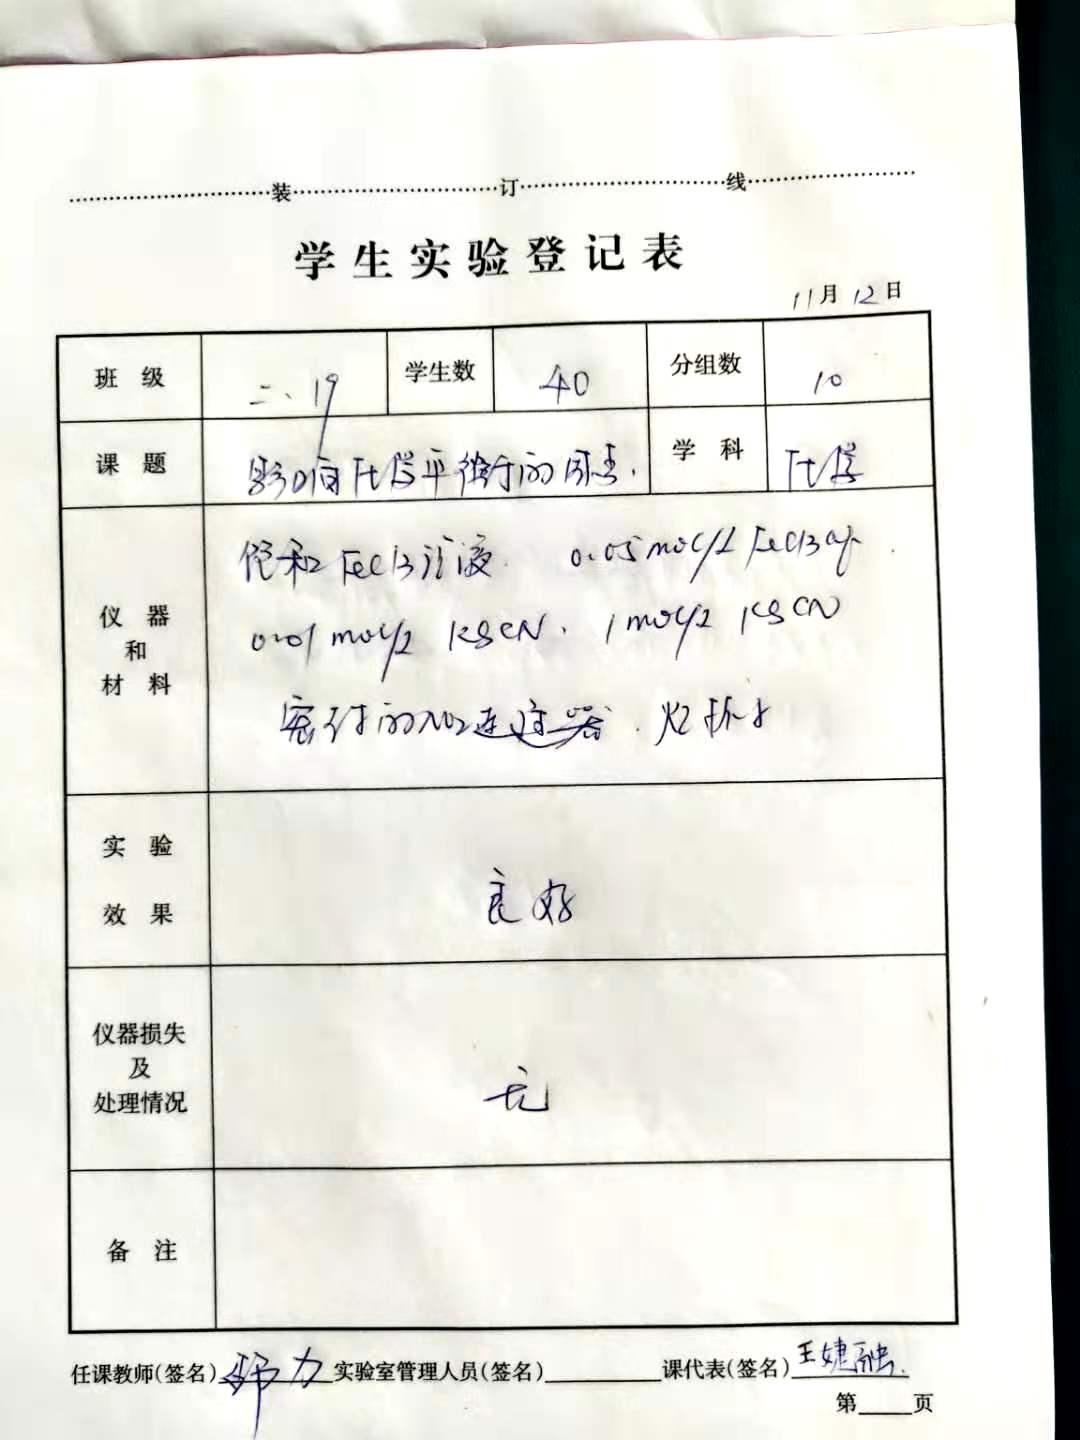 装 订 线
学生实验登记表
11月12日
班级 二、19 学生数 40 分组数 10
课题 影响化学平衡的因素. 学科 化学
仪器和材料
饱和FeCl3溶液. 0.05mol/L FeCl3
0.01mol/L KSCN. 1mol/L KSCN
密封的NO2连通器. 烧杯
实验效果 良好
仪器损失及处理情况 无
备注
任课教师(签名) 实验室管理人员(签名) 课代表(签名) 王婕融.
第 页